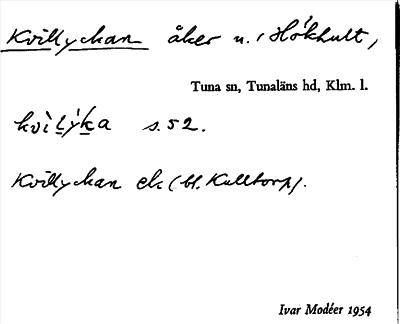 Kvillyckan åker n. Hökhult,
Tuna sn, Tunaläns hd, Klm. l.
kvìlýka s. 52.
Kvillyckan ek (bl. Kulltorp).
Ivar Modéer 1954